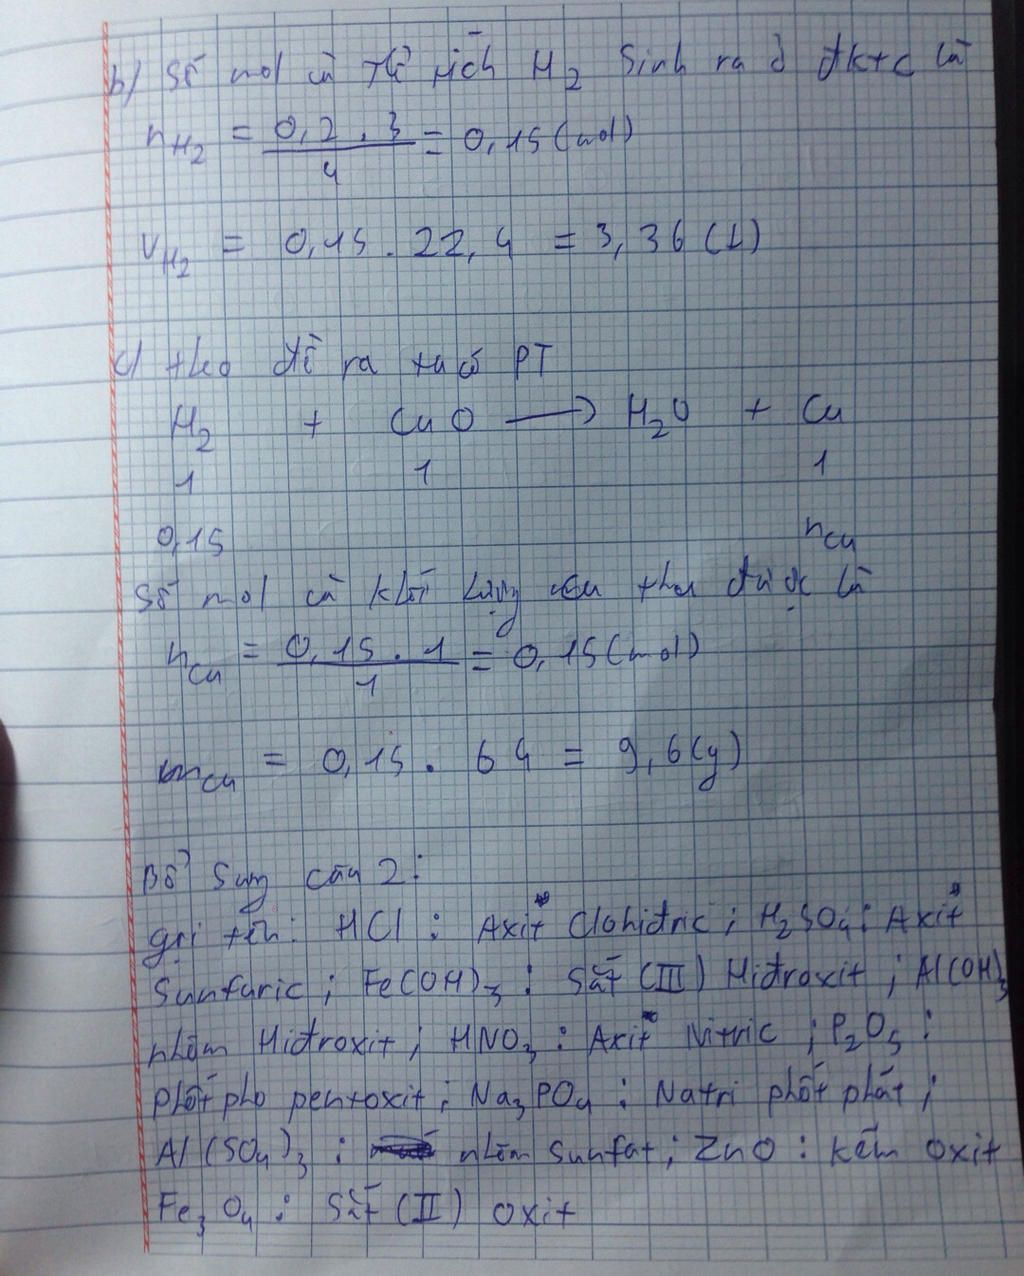 b/ Số mol và thể tích H2 Sinh ra ở đktc là
nH2 = 0,2 . 3 / 4 = 0,15 (mol)
VH2 = 0,15 . 22,4 = 3,36 (L)
c/ theo đề ra ta có PT
H2 + CuO → H2O + Cu
1 1 1
0,15 nCu
Số mol và khối lượng Cu thu được là
nCu = 0,15 . 1 / 1 = 0,15 (mol)
mCu = 0,15 . 64 = 9,6 (g)
Bổ Sung câu 2:
gọi tên: HCl : Axit Clohidric ; H2SO4 : Axit
Sunfuric ; Fe(OH)3 : Sắt (III) Hiđroxit ; Al(OH)3
nhôm Hiđroxit ; HNO3 : Axit Nitric ; P2O5 :
phốt pho pentoxit ; Na3PO4 : Natri phốt phát ;
Al(SO4)3 : nhôm Sunfat ; ZnO : kẽm oxit
Fe3O4 : Sắt (II) oxit